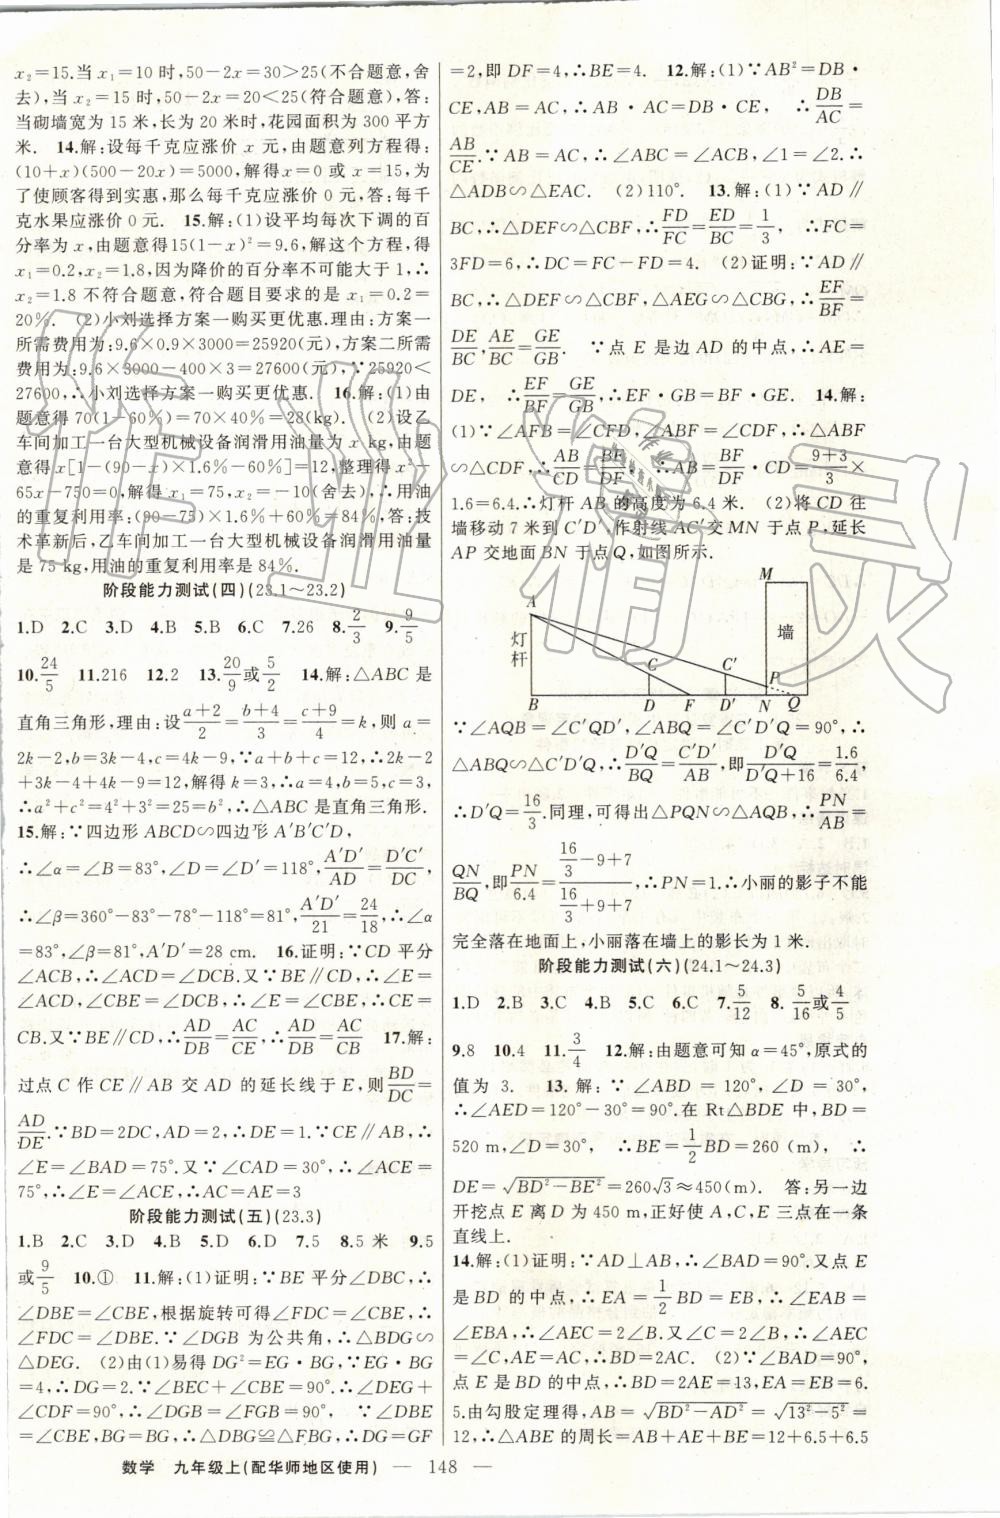 x₂=15.当 x₁=10 时,50-2x=30>25(不合题意,舍
去),当 x₂=15 时,50-2x=20<25(符合题意),答:
当砌墙宽为 15 米,长为 20 米时,花园面积为 300 平方
米. 14.解:设每千克应涨价 x 元,由题意列方程得:
(10+x)(500-20x)=6000,解得 x=0 或 x=15,为
了使顾客得到实惠,那么每千克应涨价 0 元,答:每千
克水果应涨价 0 元. 15.解:(1)设平均每次下调的百
分率为 x,由题意得15(1-x)²=9.6,解这个方程,得
x₁=0.2,x₂=1.8,因为降价的百分率不可能大于 1,∴
x₂=1.8 不符合题意,符合题目要求的是 x₁=0.2=
20%. (2)小刘选择方案一购买更优惠.理由:方案一
所需费用为:9.6×0.9×3000=25920(元),方案二所
需费用为:9.6×3000-400×3=27600(元),∵25920<
27600,∴小刘选择方案一购买更优惠. 16.解:(1)由
题意得 70(1-60%)=70×40%=28(kg). (2)设乙
车间加工一台大型机械设备润滑用油量为 x kg,由题
意得 x[1-(90-x)×1.6%-60%]=12,整理得 x²-
65x-750=0,解得 x₁=75,x₂=-10(舍去),∴用油
的重复利用率:(90-75)×1.6%+60%=84%,答:技
术革新后,乙车间加工一台大型机械设备润滑用油量
是 75 kg,用油的重复利用率是 84%.
阶段能力测试(四)(23.1~23.2)
1.D 2.C 3.D 4.B 5.B 6.C 7.26 8.2/3 9.9/5
10.24/5 11.216 12.2 13.20/9或5/2 14.解:△ABC 是
直角三角形,理由:设(a+2)/2=(b+4)/3=(c+9)/4=k,则 a=
2k-2,b=3k-4,c=4k-9,∵a+b+c=12,∴2k-2
+3k-4+4k-9=12,解得 k=3,∴a=4,b=5,c=3,
∴a²+c²=4²+3²=25=b²,∴△ABC 是直角三角形.
15.解:∵四边形 ABCD∽四边形 A′B′C′D′,
∴∠α=∠B=83°,∠D=∠D′=118°,A′D′/AD=D′C′/DC,
∴∠β=360°-83°-78°-118°=81°,A′D′/21=24/18,∴∠α
=83°,∠β=81°,A′D′=28 cm. 16.证明:∵CD 平分
∠ACB,∴∠ACD=∠DCB.又∵BE∥CD,∴∠E=
∠ACD,∠CBE=∠DCB,∴∠E=∠CBE,∴CE=
CB.又∵BE∥CD,∴AD/DB=AC/CE,∴AD/DB=AC/CB 17.解:
过点 C 作 CE∥AB 交 AD 的延长线于 E,则BD/DC=
AD/DE.∵BD=2DC,AD=2,∴DE=1.∵CE∥AB,∴
∠E=∠BAD=75°.又∵∠CAD=30°,∴∠ACE=
75°,∴∠E=∠ACE,∴AC=AE=3
阶段能力测试(五)(23.3)
1.B 2.C 3.D 4.D 5.D 6.D 7.5 8.5 米 9.5
或9/5 10.① 11.解:(1)证明:∵BE 平分∠DBC,∴
∠DBE=∠CBE,根据旋转可得∠FDC=∠CBE,∴
∠FDC=∠DBE.∵∠DGB 为公共角,∴△BDG∽
△DEG. (2)由(1)易得 DG²=EG·BG,∵EG·BG
=4,∴DG=2.∵∠BEC+∠CBE=90°,∴∠DEG+
∠CDF=90°,∴∠DGB=∠FGB=90°, ∵∠DBE
=∠CBE,BG=BG,∴△DBG≌△FBG,∴DG=GF
=2,即 DF=4,∴BE=4. 12.解:(1)∵AB²=DB·
CE,AB=AC,∴AB·AC=DB·CE, ∴DB/AC=
AB/CE.∵AB=AC,∴∠ABC=∠ACB,∠1=∠2.∴
△ADB∽△EAC. (2)110°. 13.解:(1)∵AD∥
BC,∴△DEF∽△CBF,∴FD/FC=ED/BC=1/3,∴FC=
3FD=6,∴DC=FC-FD=4. (2)证明:∵AD∥
BC,∴△DEF∽△CBF,△AEG∽△CBG,∴EF/BF=
DE/BC,AE/BC=GE/GB. ∵点 E 是边 AD 的中点,∴AE=
DE, ∴EF/BF=GE/GB,∴EF·GB=BF·GE. 14.解:
(1)∵∠AFB=∠CFD,∠ABF=∠CDF,∴△ABF
∽△CDF,∴AB/CD=BF/DF,∴AB=BF/DF·CD=(9+3)/3×
1.6=6.4.∴灯杆 AB 的高度为 6.4 米. (2)将 CD 往
墙移动 7 米到 C′D′,作射线 AC′交 MN 于点 P,延长
AP 交地面 BN 于点 Q,如图所示.
M
A
灯杆
墙
C C′ P
B D F D′ N Q
∵∠AQB=∠C′QD′,∠ABQ=∠C′D′Q=90°,∴
△ABQ∽△C′D′Q,∴D′Q/BQ=C′D′/AB,即D′Q/(D′Q+16)=1.6/6.4,
∴D′Q=16/3.同理,可得出△PQN∽△AQB,∴PN/AB=
QN/BQ,即PN/6.4=(16/3-9+7)/(16/3+9+7),∴PN=1.∴小丽的影子不能
完全落在地面上,小丽落在墙上的影长为 1 米.
阶段能力测试(六)(24.1~24.3)
1.D 2.B 3.C 4.B 5.C 6.C 7.5/12 8.5/16或4/5
9.8 10.4 11.3/4 12.解:由题意可知 α=45°,原式的
值为 3. 13.解:∵∠ABD=120°,∠D=30°,
∴∠AED=120°-30°=90°.在 Rt△BDE 中,BD=
520 m,∠D=30°, ∴BE=1/2BD=260(m), ∴
DE=√(BD²-BE²)=260√3≈450(m). 答:另一边
开挖点 E 离 D 为 450 m,正好使 A,C,E 三点在一条
直线上.
14.解:(1)证明:∵AD⊥AB,∴∠BAD=90°.又点 E
是 BD 的中点,∴EA=1/2BD=EB,∴∠EAB=
∠EBA,∴∠AEC=2∠B.又∠C=2∠B,∴∠AEC
=∠C,∴AE=AC,∴BD=2AC. (2)∵∠BAD=90°,
点 E 是 BD 的中点,∴BD=2AE=13,EA=EB=6.
5.由勾股定理得,AB=√(BD²-AD²)=√(13²-5²)=
12,∴△ABE 的周长=AB+AE+BE=12+6.5+6.5
数学 九年级上(配华师地区使用) — 148 —
作业精灵